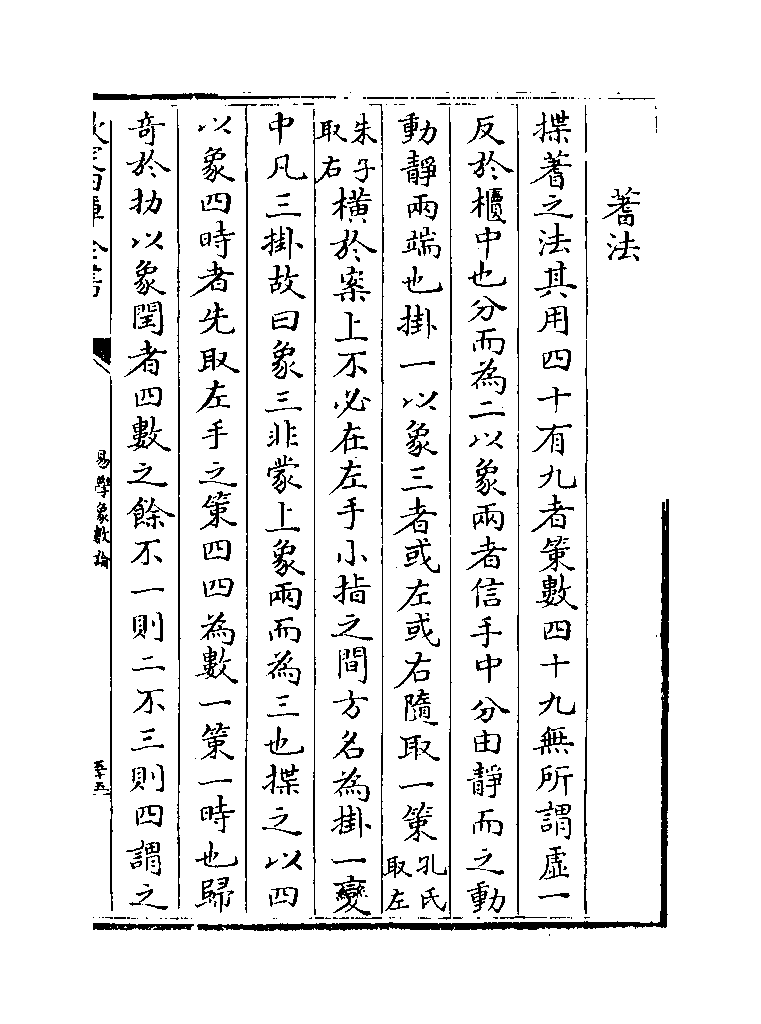 蓍法
揲蓍之法其用四十有九者策數四十九無所謂虛一
反於櫃中也分而為二以象兩者信手中分由靜而之動
動靜兩端也掛一以象三者或左或右隨取一策孔氏取左
朱子取右橫於案上不必在左手小指之間方名為掛一變
中凡三掛故曰象三非蒙上象兩而為三也揲之以四
以象四時者先取左手之策四四為數一策一時也歸
奇於扐以象閏者四數之餘不一則二不三則四謂之
易學象數論